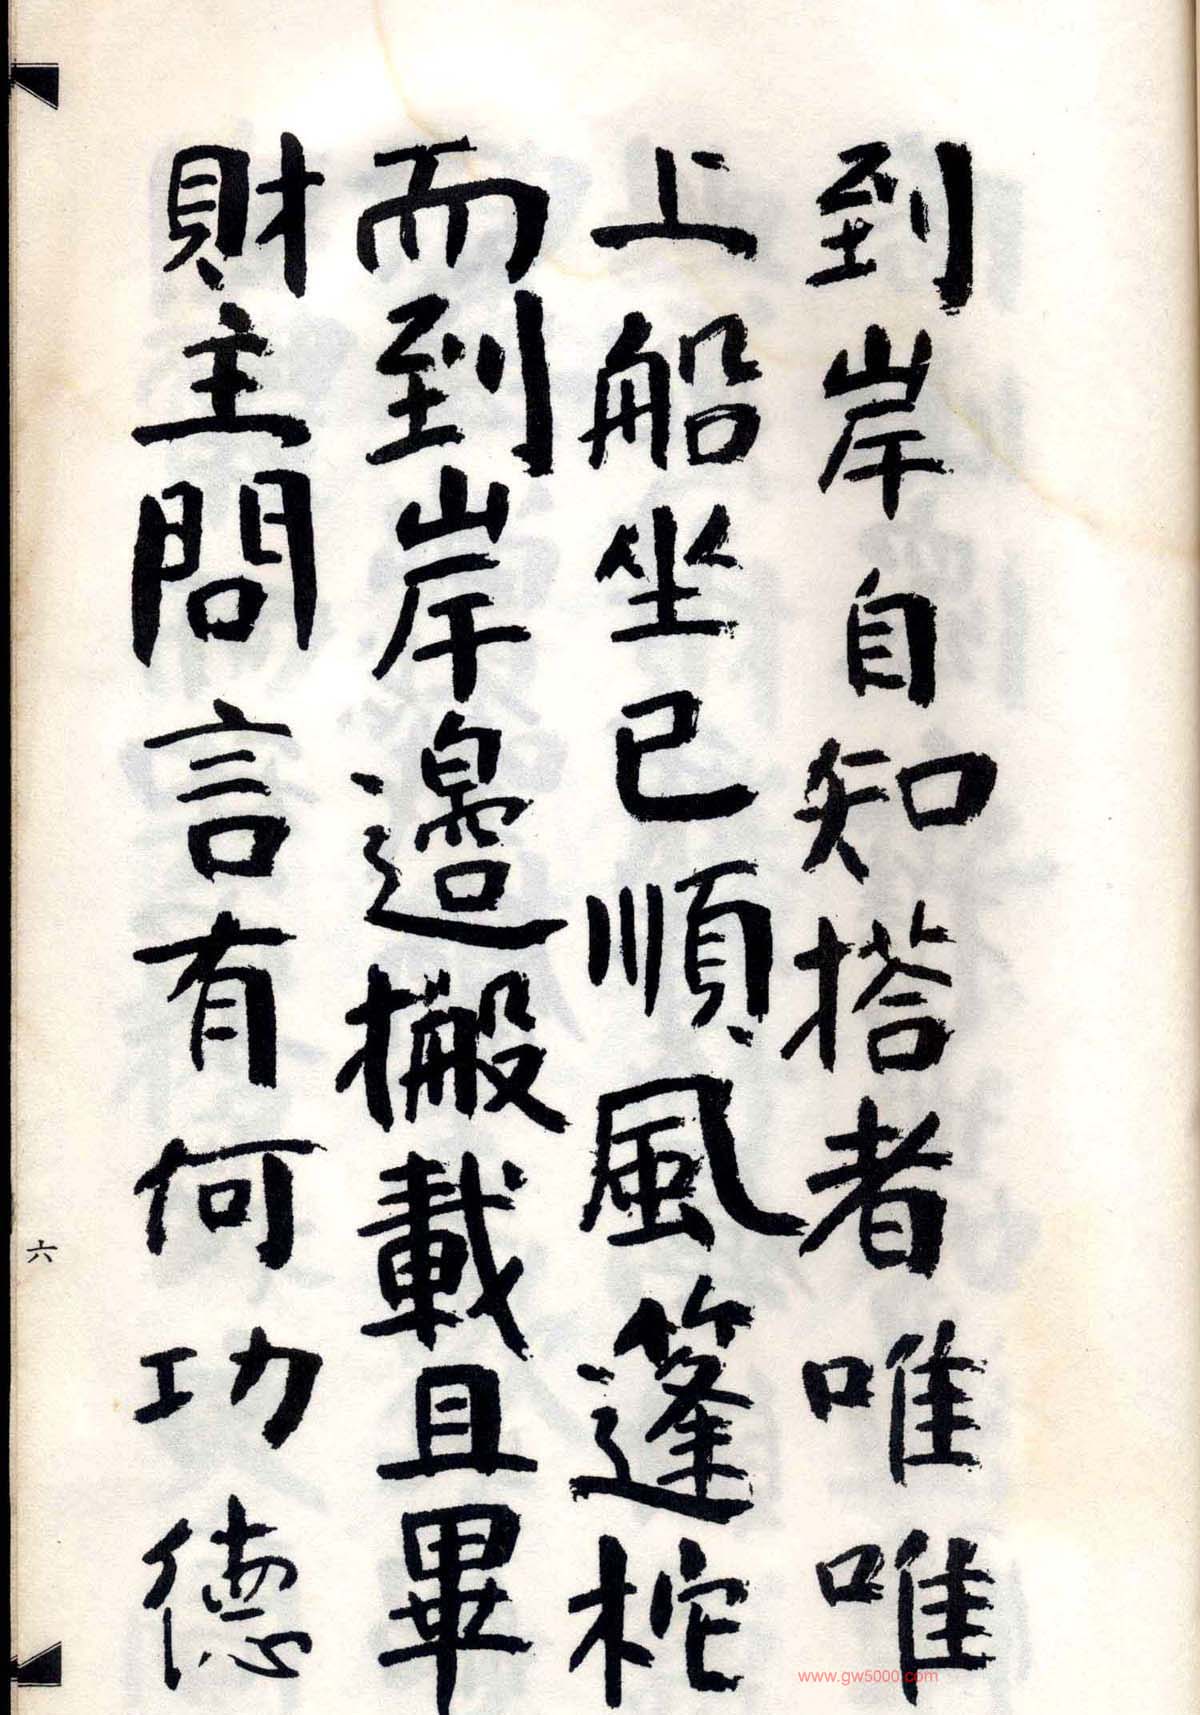 到岸自知搭者唯唯
上船坐已順風篷柁
而到岸邊搬載且畢
財主問言有何功德
六
www.gw5000.com